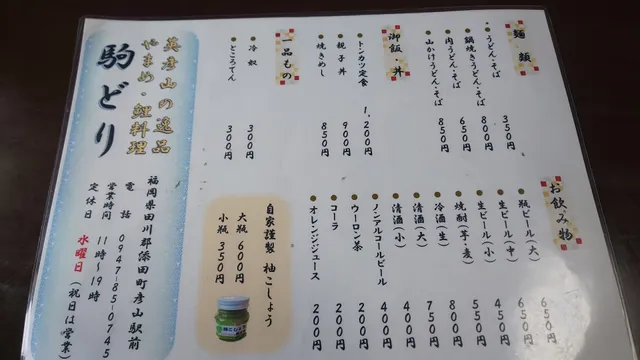 麺類
うどん・そば 350円
鍋焼きうどん・そば 800円
肉うどん・そば 650円
山かけうどん・そば 850円
御飯・丼
トンカツ定食 1,200円
親子丼 900円
焼きめし 850円
一品もの
冷奴 300円
ところてん 300円
お飲み物
瓶ビール(大) 650円
生ビール(中) 650円
生ビール(小) 450円
焼酎(芋・麦) 550円
冷酒(生) 800円
清酒(大) 750円
清酒(小) 400円
ノンアルコールビール 400円
ウーロン茶 200円
コーラ 200円
オレンジジュース 200円
自家謹製 柚こしょう
大瓶 600円
小瓶 350円
英彦山の逸品
やまめ・鯉料理
駒どり
福岡県田川郡添田町彦山駅前
電話 0947-85-0745
営業時間 11時～19時
定休日 水曜日(祝日は営業)